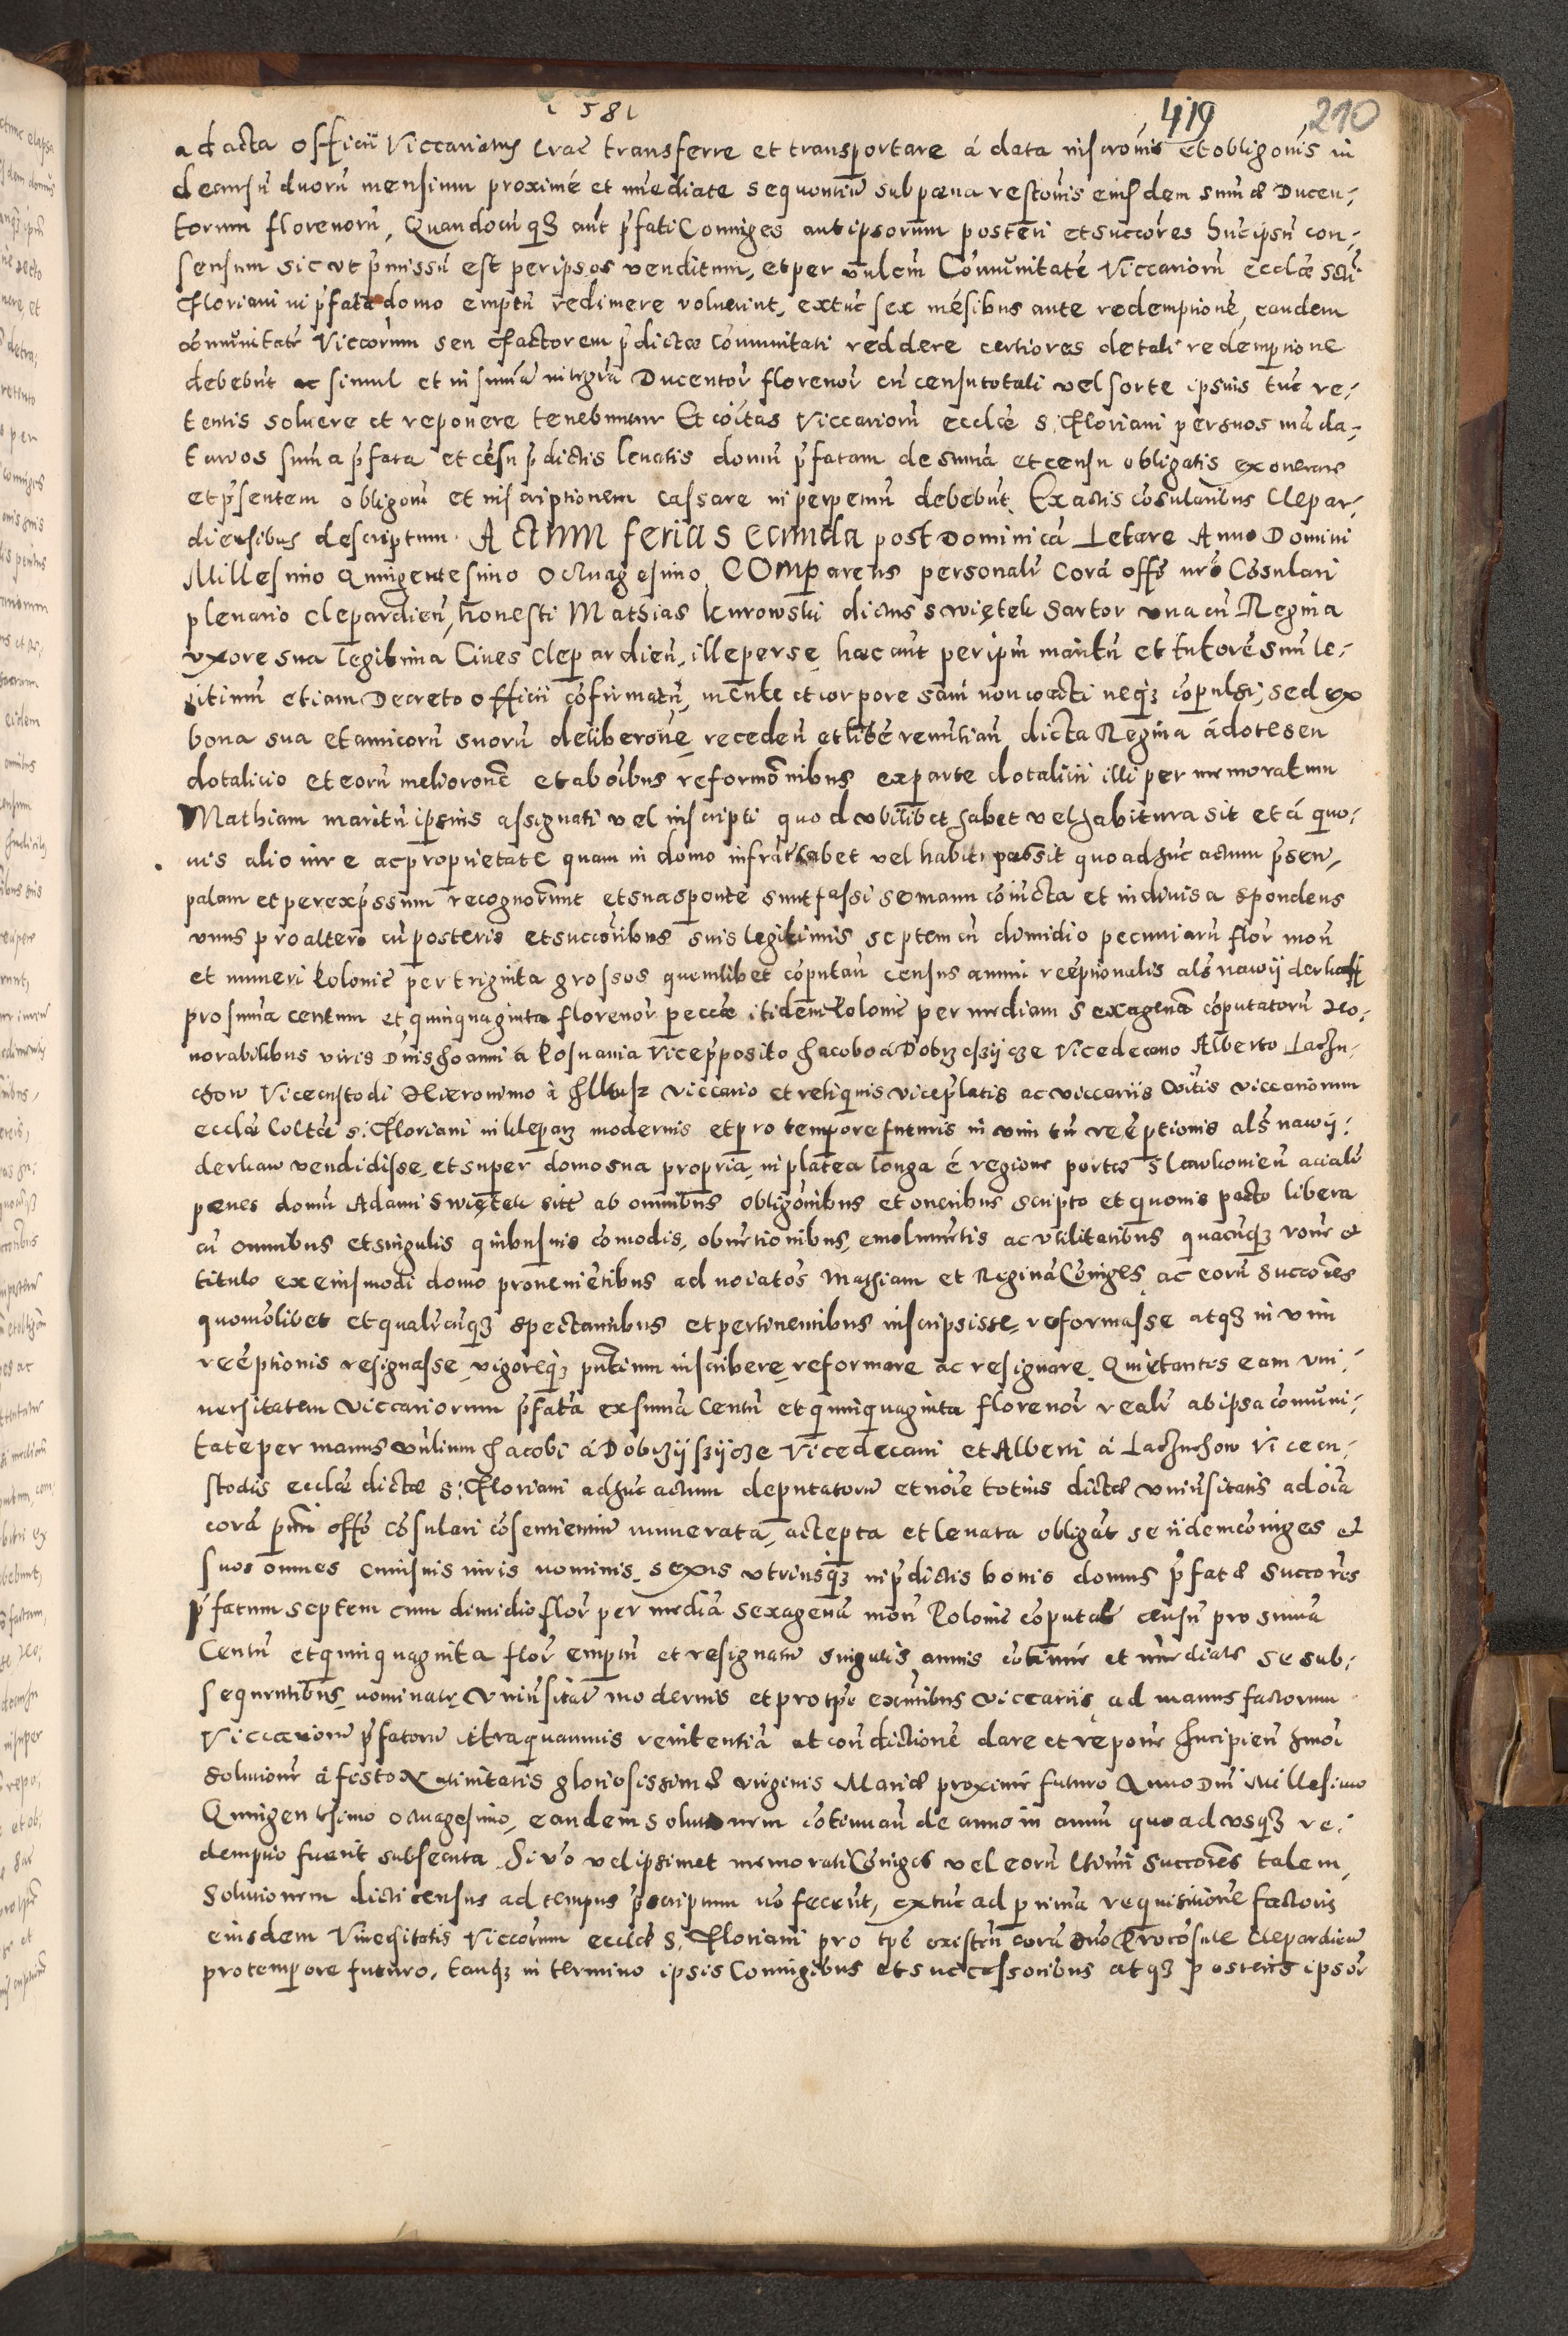 1581
419 210
ad acta officii Viccariatus Crac transferre et transportare á data inscronis et obligonis in
decursu duoru mensium proximé et imediate sequentiu sub poena restonis eiusdem sumæ Ducen-
torum florenoru, Quandocuqz aut pfati Coniuges aut ipsorum posteri et succores huc ipsu con-
sensum sicut pmissu est per ipsos venditum, et per vnlem Comunitate Viccarioru ecclæ Scti
Floriani in pfata domo emptu redimere voluerint, extuc sex mesibus ante redemptione, eandem
comunitate Viccorum seu Factorem pdictæ comunitati reddere certiores de tali redemptione
debebut ac simul et in suma integra Ducentor florenor cu censu totali vel sorte ipsius tuc re-
tentis soluere et reponere tenebuntur Et coitas Viccarioru ecclæ S. Floriani per suos mada-
tarios suma pfata et cesu pdictis leuatis domu pfatam de suma et censu obligatis exonerare
et psentem obligone et inscriptionem cassare in perpetuu debebut. Ex actis cosularibus Clepar-
diensibus descriptum. Actum feria secunda post Dominica Letare Anno Domini
Millesimo Quingentesimo Octuagesimo COmparens personalr cora offo nro Cosulari
plenario clepardien, honesti Mathias kurowski dictus swiętek Sartor vna cu Regina
vxore sua legitima Ciues Clepardien, ille per se hæc aut per ipm maritu et tutore suu le-
gitimu etiam Decreto officii cofirmatu, mente et corpore sani non coacti neqz copulsi, sed ex
bona sua et amicoru suoru deliberone receden et libe renutian dicta Regina á dote seu
dotalicio et eoru melioronc et ab oibus reformonibus ex parte dotalitii illi per memoratum
Mathiam maritu ipsius assignati vel inscripti quod vbilibet habet vel habitura sit et á quo-
uis alio iure ac proprietate quam in domo infra habet vel habiti possit quoad huc actum psen,
palam et per expssum recognorunt et sua sponte sunt fassi se manu coiucta et indiuisa spondens
vnus pro altero cu posteris et succoribus suis legitimis septem cu dimidio pecuniaru flor mon
et numeri Polonic per triginta grossos quemlibet coputan census annui reeptionalis als nawij derkaff
pro suma centum et quinquaginta florenor peccæ itidem Polonic per mediam sexagena coputatoru Ho-
norabilibus viris Dnis Joanni á Posnania Viceposito Jacobo á Dobrzcszijcze Vicedecano Alberto Lachu-
chow Vicecustodi Hieronimo á Ilkusz viccario et reliquis viceplatis ac viccariis coitis viccariorum
ecclæ Coltæ S. Floriani in Klepars modernis et pro tempore futuris in vim tn reeptionis als nawij-
derkaw vendidisse, et super domo sua propria, in platea longa é regione portæ Slawkouien acialr
penes domu Adami Swiętek sitt ab omnibus obligonibus et oneribus scripto et quouis pacto libera
cu omnibus et singulis quibusuis comodis, obuetionibus, emolumetis ac vtilitatibus quacuqz rone et
titulo ex eiusmodi domo prouenietibus ad noiatos Mathiam et Regina Coniuges ac eoru succores
quomolibet et qualrcuqz spectantibus et pertinentibus inscripsisse, reformasse atqz in vim
reeptionis resignasse, vigoreqz pntium inscribere, reformare ac resignare. Quietantes eam vni-
uersitatem Viccariorum pfata ex suma Centu et quinquaginta florenor realr ab ipsa comuni-
tate per manus vnlium Jacobi á Dobczijszijcze Vicedecani et Alberti á Lachuchow Vicecu-
stodis ecclæ dictæ S. Floriani ad huc actum deputatoru et noie totius dictæ vniuersitatis ad oia
cora pnti offo cosulari cosentientiu numerata, accepta et leuata obligat se iidem coniuges et
suos omnes cuiusuis iuris nominis, sexus vtriusqz in pdictis bonis domus pfatæ succores
pfatum septem cum dimidio flor per media sexagena mon Polonic coputat censu pro suma
Centu et quinquaginta flor emptu et resignatu singulis annis cotinue et imediate se sub-
sequentibus, nominatę Vniuersitati modernis et pro tpe exntibus viccariis ad manus factorum
Viccarioru pfatoru citra quamuis renitentia et condictione dare et repone Incipien huoi
solutione á festo Natiuitatis gloriosissimæ virginis Mariæ proxime futuro Anno Dni Millesimo
Quingentesimo octuagesimo, eandem solutionem cotinuan de anno in annu quoadusqz re-
demptio fuerit subsecuta. Si vo vel ipsimet memorati Coniuges vel eoru ltimi succores talem
solutionem dicti census ad tempus pscriptum no fecerut, extuc ad prima requisitione factoris
eiusdem Vniuersitatis Viccorum ecclæ S. Floriani pro tpe existen cora dno Procosule Clepardien
pro tempore futuro, tanqz in termino ipsis Coniugibus et successoribus atqz posteris ipsor